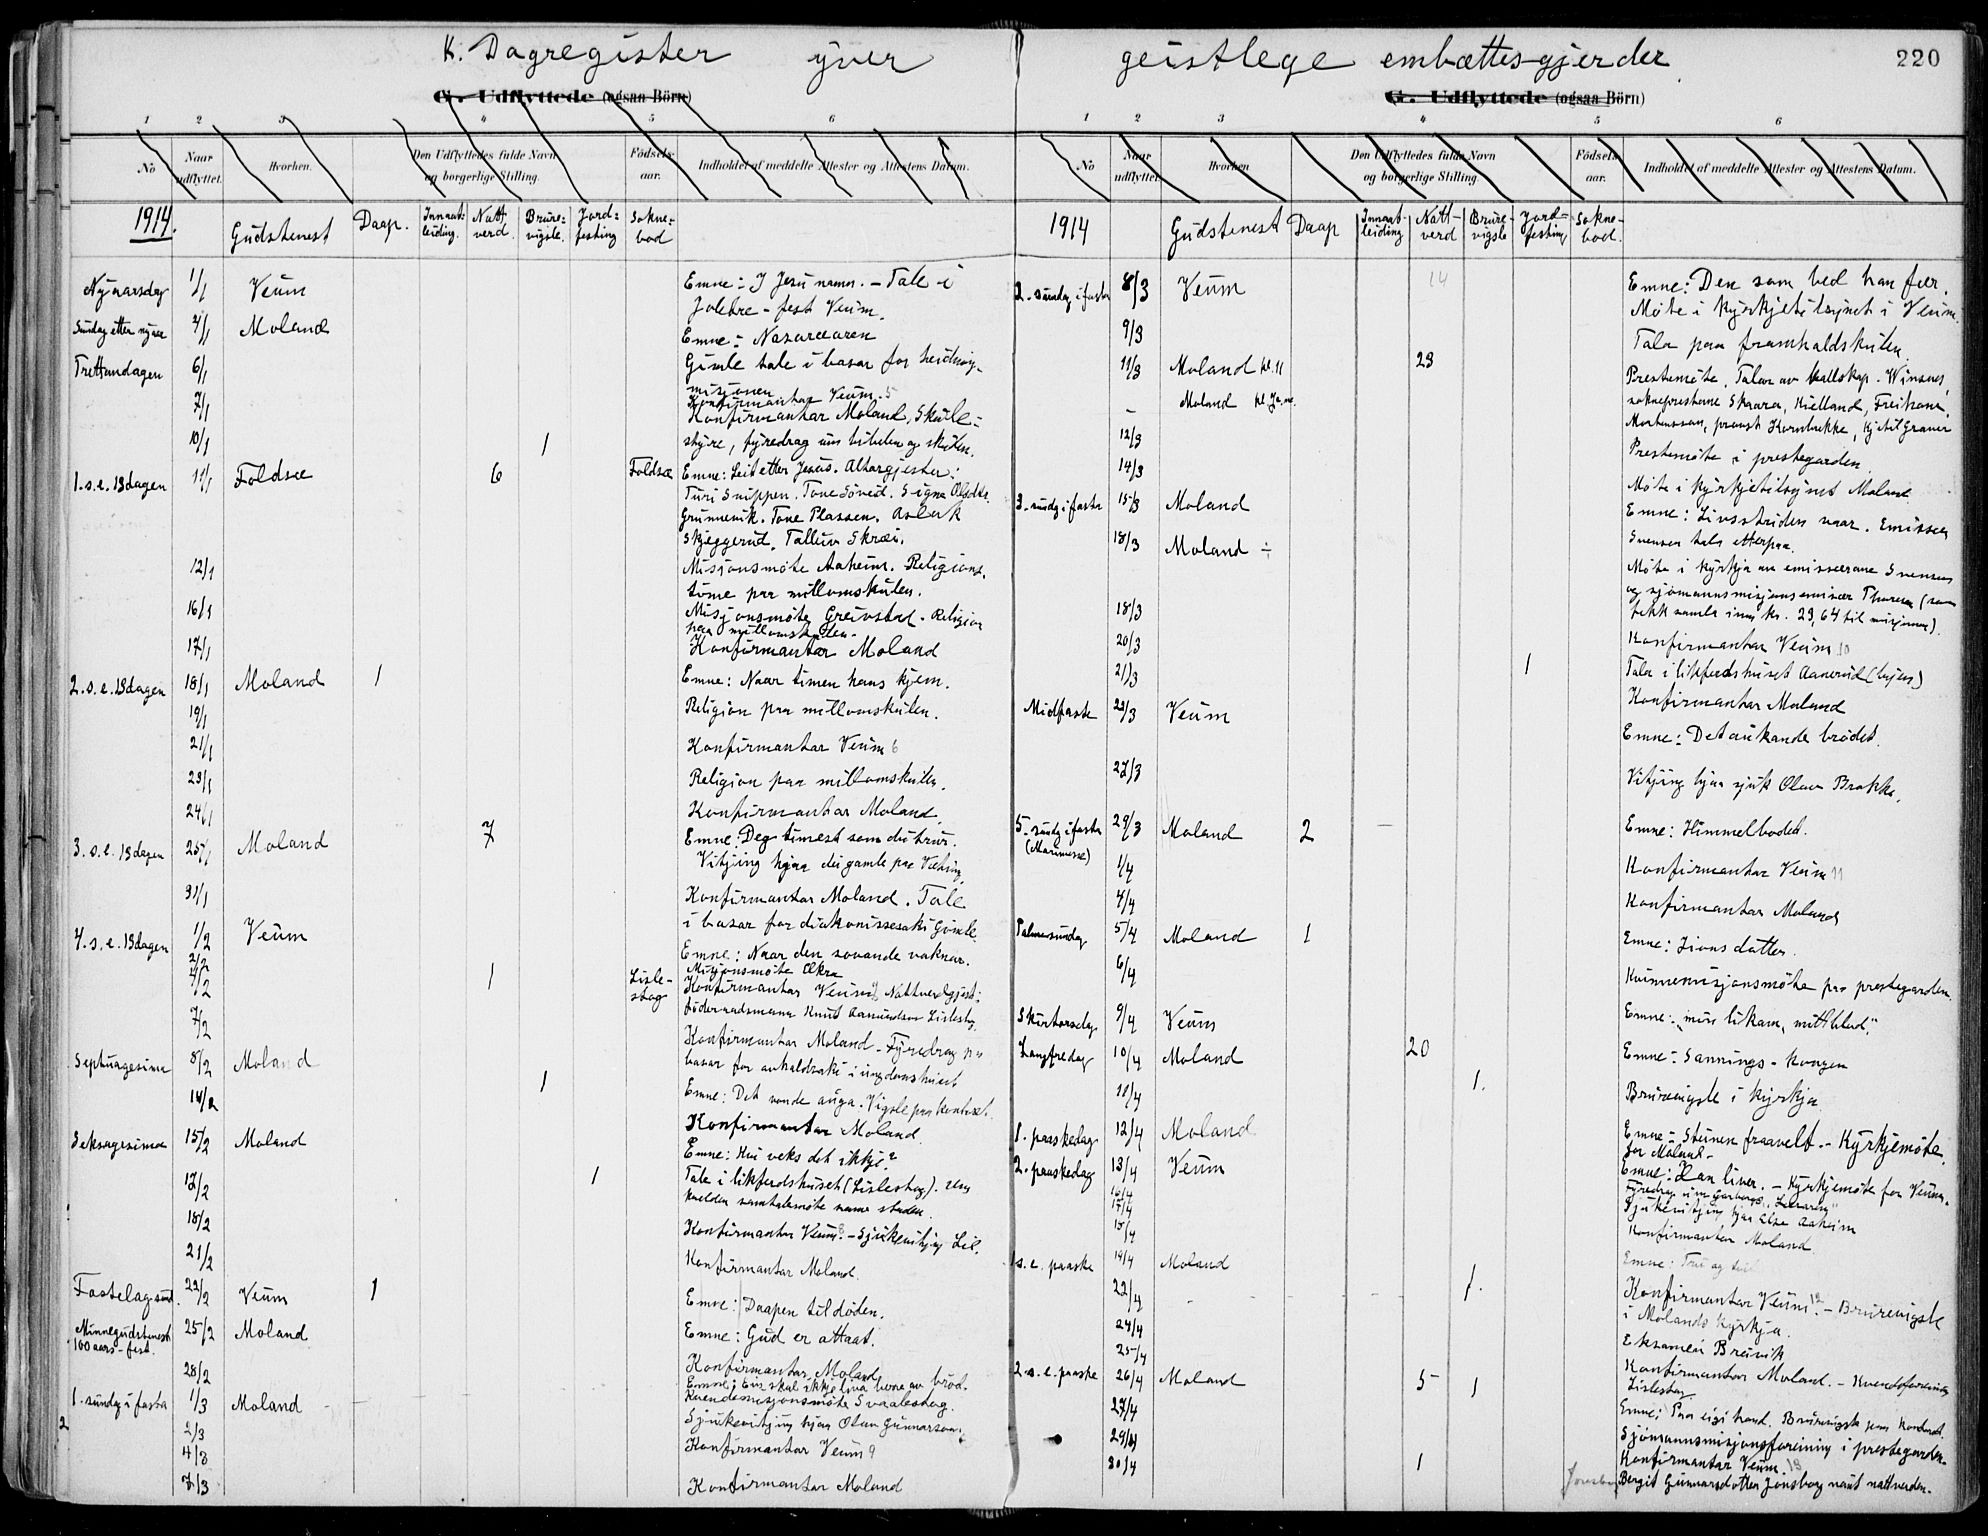 K. Dagregister yver geistlege embættesgjerder
220
G. Udflyttede (ogsaa Börn)
1 2 3 4 5 6
No
Naar udflyttet.
Hvorhen.
Den Udflyttedes fulde Navn og borgerlige Stilling.
Fødsels-aar.
Indholdet af meddelte Attester og Attestens Datum.
1914. Gudstenest Daap. Innaat-leiding. Natt-verd. Brure-vigsle. Jord-festing Sokne-bod
Nyaarsdag 1/1 Veum Emne: I Jesu namn. - Tale i
Joletre-fest Veum.
Sundag etter nyaar 4/1 Moland Emne: Nazaréaren
Trettandagen 6/1 Gimle tale i basar for heidning-
misjonen
7/1 Konfirmantar Veum. 5
10/1 1 Konfirmantar Moland, Skule-
styre, fyredrag um bibelen og skulen.
1. s. e. 13dagen 11/1 Foldsæ 6 Foldsæ Emne: Leit etter Jesus. Altargjester:
Turi Snippen. Tone Söveid. Signe Olsdtr.
Grunnevik. Tone Plassen. Aslak
Skjeggerud. Talleiv Skræi.
12/1 Misjonsmöte Aaheim. Religions-
time paa millomskulen.
16/1 Misjonsmöte Greivstad. Religion
paa millomskulen.
17/1 Konfirmantar Moland
2. s. e. 13dagen 18/1 Moland 1 Emne: Naar timen hans kjem.
19/1 Religion paa millomskulen.
21/1 Konfirmantar Veum 6
23/1 Religion paa millomskulen.
24/1 Konfirmantar Moland.
3. s. e. 13dagen 25/1 Moland 7 Emne: Deg timest som du trur.
Vitjing hjaa dei gamle paa
31/1 Konfirmantar Moland. Tale
i basar for diakonissesaki Gimle.
4. s. e. 13dagen 1/2 Veum Emne: Naar den sovande vaknar.
2/2 Misjonsmöte Ækra
4/2 1 Lisle-stog Konfirmantar Veum 7. Nattverdgjest:
föderaadsmann Knut Aamundson Lislestog.
7/2 Konfirmantar Moland - Fyredrag paa
basar for avhaldssaki i ungdomshuset
Septuagesima 8/2 Moland Emne: Det vonde auga. Vigsle paa kontoret.
14/2 1 Konfirmantar Moland.
Seksagesima 15/2 Moland Emne: Kvi veks det ikkje?
17/2 1 Tale i likferdshuset (Lislestog). Um
kvelden samtalemöte same staden.
18/2 Konfirmantar Veum 8. - Sjukevitjing Lil.
21/2 Konfirmantar Moland.
Fastelagssund. 22/2 Veum 1 Emne: Daapen til döden.
Minnegudstenest 100 aars-fest. 25/2 Moland Emne: Gud er attaat.
28/2 Konfirmantar Moland
1. sundag i fasta 1/3 Moland Emne: Ein skal ikkje liva berre av bröd.
2/3 Kvendemisjonsmöte Svaalestog.
Sjukevitjing hjaa Olav Gunnarson.
4/3 Konfirmantar Veum 9
7/3 Konfirmantar Moland
1914 Gudstenest Daap Innaat-leiding Natt-verd Brure-vigsle Jord-festing Sokne-bod.
2. sundag i fasta 8/3 Veum 14 Emne: Den som bed han fær.
Möte i kyrkjetilsynet i Veum.
9/3 Talar paa framhaldskulen.
11/3 Moland kl. 11 23 Prestemöte. Talar av kallskap. Winsnes,
Moland sokneprestane Skaara, Kielland, Freihow,
Mortensson, proost Kornbrekke, Kjetil Graver
12/3 Prestemöte i prestegarden.
14/3 Möte i kyrkjetilsynet Moland
3. sundag i fasta 15/3 Moland Emne: Livsstriden vaar. Emissær
Svensen tala etterpaa.
18/3 Moland ÷ Möte i kyrkja av emissærane Svensen
og sjömannsmisjonsemissær Thoresen (som
fekk samla inn kr. 23,64 til misjonen).
18/3 Konfirmantar Veum 10
20/3
21/3 1 Tala i likferdshuset Aanerud (byen)
Konfirmantar Moland
Midfaste 22/3 Veum Emne: Det aukande brödet.
27/3 Vitjing hjaa sjuk Olav Brokke.
5. sundag i fasta (Marimesse) 29/3 Moland 2 Emne: Himmelbodet.
1/4 Konfirmantar Veum 11
4/4 Konfirmantar Moland
Palmesundag 5/4 Moland 1 Emne: Sions datter.
6/4 Kvinnemisjonsmöte paa prestegarden.
Skirtorsdag 9/4 Veum Emne: "min likam, mitt blod."
Langfredag 10/4 Moland 20 Emne: Sannings-kongen
11/4 1. Brurevigsle i kyrkja
1. paaskedag 12/4 Moland Emne: Steinen fraavelt. - Kyrkjemöte
for Moland.
2. paaskedag 13/4 Veum Emne: Han liver. - Kyrkjemöte for Veum.
16/4 Fyredrag um Garborgs "Læraren"
17/4 Sjukevitjing hjaa Else Aaheim
18/4 Konfirmantar Moland
1 s. e. paaske 19/4 Moland Emne: Tru og
22/4 1. Konfirmantar Veum 12. - Brurevigsle
i Molands kyrkja.
24/4 Eksamen Breivik
25/4 Konfirmantar Moland. - Kvendeforening
Lislestog
2. s. e. paaske 26/4 Moland 5 1 Emne: Paa eigi hand. Brurevigsle paa kontoret.
27/4 Sjömannsmisjonsforeining i prestegarden.
29/4 Konfirmantar Veum. 13
30/4 1 Jonsborg Bergit Gunnarsdotter Jonsborg naut nattverden.